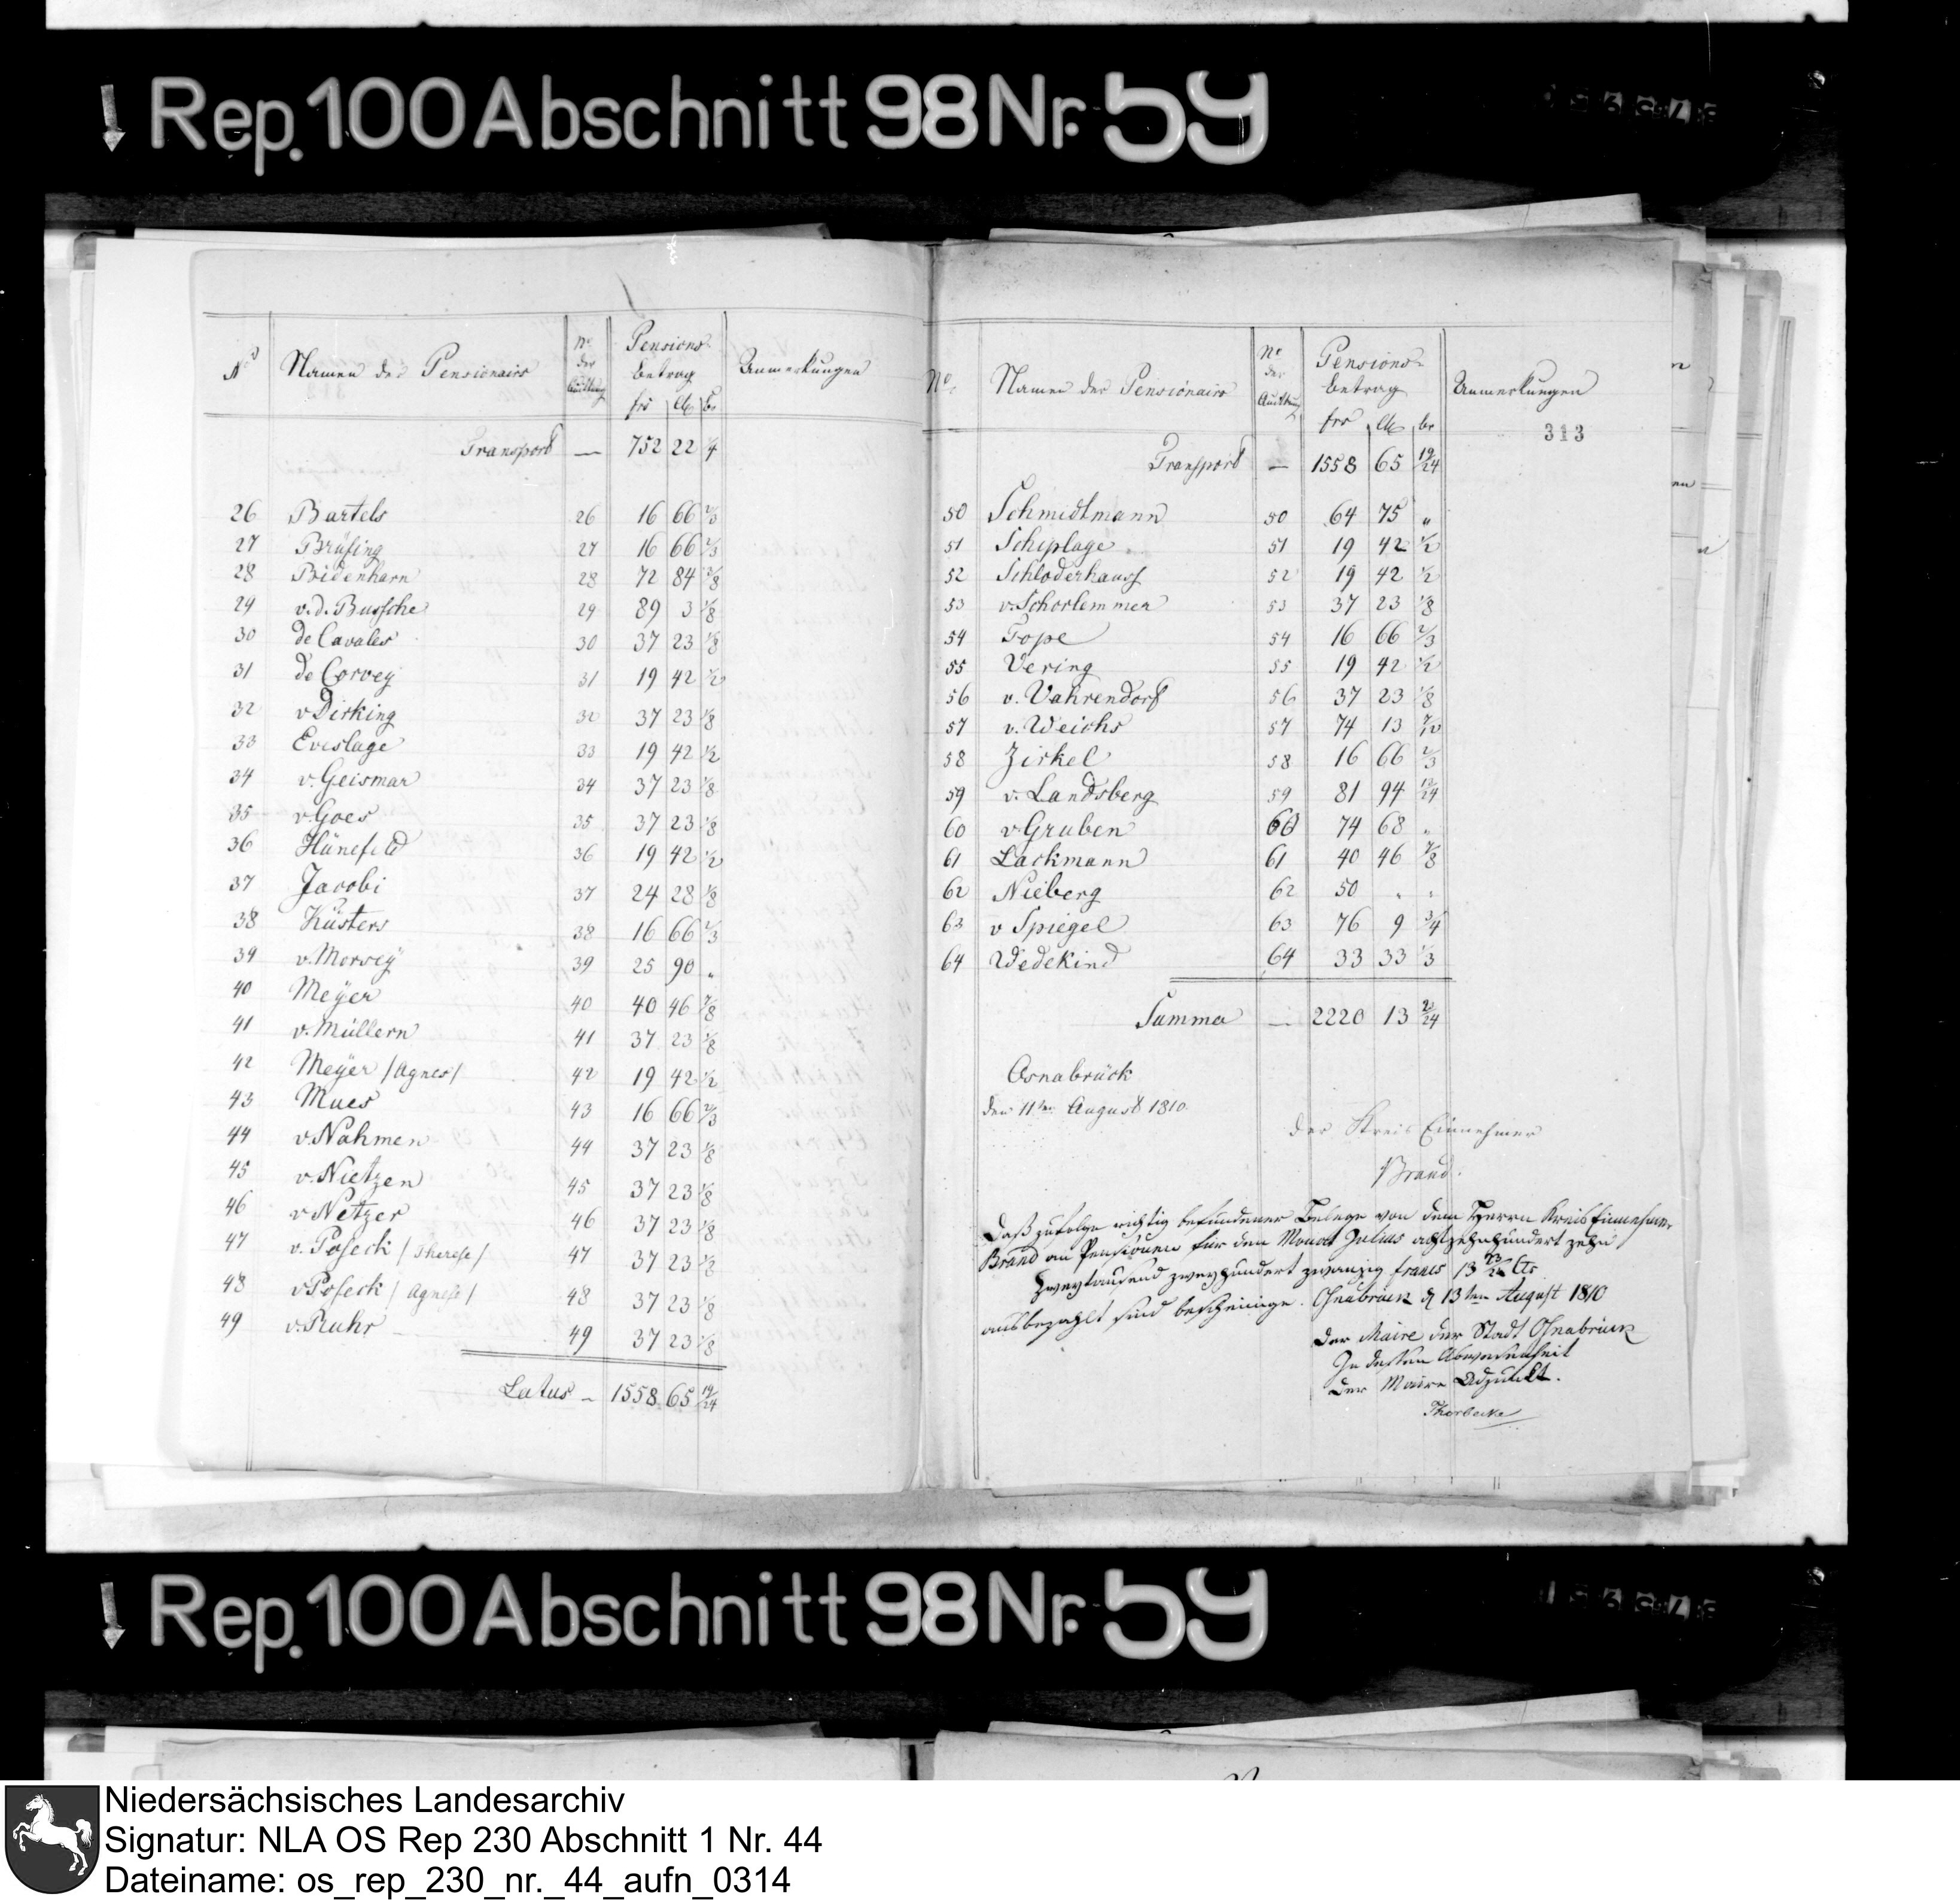 Rep. 100 Abschnitt 98 Nr. 59
No Namen der Pensionairs No der Quittung Pensions- betrag Anmerkungen
frs cts br
Transport — 752 22 1/4
26 Bartels 26 16 66 2/3
27 Brüfing 27 16 66 2/3
28 Bidenharn 28 72 84 3/8
29 v. d. Bussche 29 89 3 1/8
30 de Cavales 30 37 23 1/8
31 de Corvey 31 19 42 1/2
32 v Dirking 32 37 23 1/8
33 Eveslage 33 19 42 1/2
34 v. Geismar 34 37 23 1/8
35 v. Goes 35 37 23 1/8
36 Hünefeld 36 19 42 1/2
37 Jacobi 37 24 28 1/8
38 Küsters 38 16 66 2/3
39 v. Morsey 39 25 90 "
40 Meÿer 40 40 46 7/8
41 v. Müllern 41 37 23 1/8
42 Meÿer /Agnes/ 42 19 42 1/2
43 Mues 43 16 66 2/3
44 v Nahmen 44 37 23 1/8
45 v. Nietzen 45 37 23 1/8
46 v Netzer 46 37 23 1/8
47 v. Poseck /Therese/ 47 37 23 1/8
48 v Poseck /Agnese/ 48 37 23 1/8
49 v. Ruhr 49 37 23 1/8
Latus – 1558 65 19/24
No. Namen der Pensionairs No der Quittung Pensions- betrag Anmerkungen
frs cts br
313
Transport — 1558 65 19/24
50 Schmidtmann 50 64 75 "
51 Schiplage 51 19 42 1/2
52 Schloderhaus 52 19 42 1/2
53 v. Schorlemmer 53 37 23 1/8
54 Tope 54 16 66 2/3
55 Vering 55 19 42 1/2
56 v. Vahrendorf 56 37 23 1/8
57 v. Weichs 57 74 13
58 Zirkel 58 16 66 2/3
59 v. Landsberg 59 81 94
60 v Gruben 60 74 68 "
61 Lackmann 61 40 46 7/8
62 Nieberg 62 50 " "
63 v Spiegel 63 76 9 3/4
64 Wedekind 64 33 33 1/3
Summa — 2220 13
Osnabrück
den 11ten August 1810
der Kreis Einnehmer
Brand.
Daß zufolge richtig befundener Belege von dem Herrn Kreis Einnehmer
Brand an Pensionen für den Monat Julius achtzehnhundert zehn
Zweytausend zweyhundert zwanzig francs 13 23/24 Cts
ausbezahlt sind bescheinige. Osnabrück d 13ten August 1810
Der Maire der Stadt Osnabrück
In dessen Abwesenheit
Der Maire Adjunkt.
Thorbecke
Rep. 100 Abschnitt 98 Nr. 59
Niedersächsisches Landesarchiv
Signatur: NLA OS Rep 230 Abschnitt 1 Nr. 44
Dateiname: os_rep_230_nr._44_aufn_0314